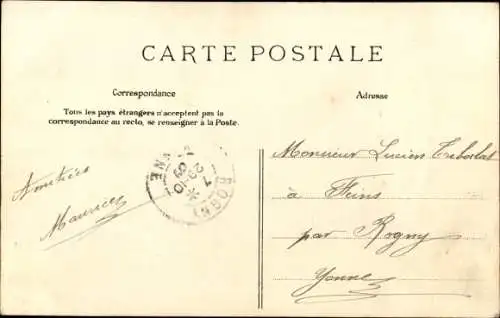 CARTE POSTALE
Correspondance
Adresse
Tous les pays étrangers n'acceptent pas la
correspondance au recto, se renseigner à la Poste.
Amitiés
Maurice
Monsieur Lucien
à Feins
par Rogny
Yonne